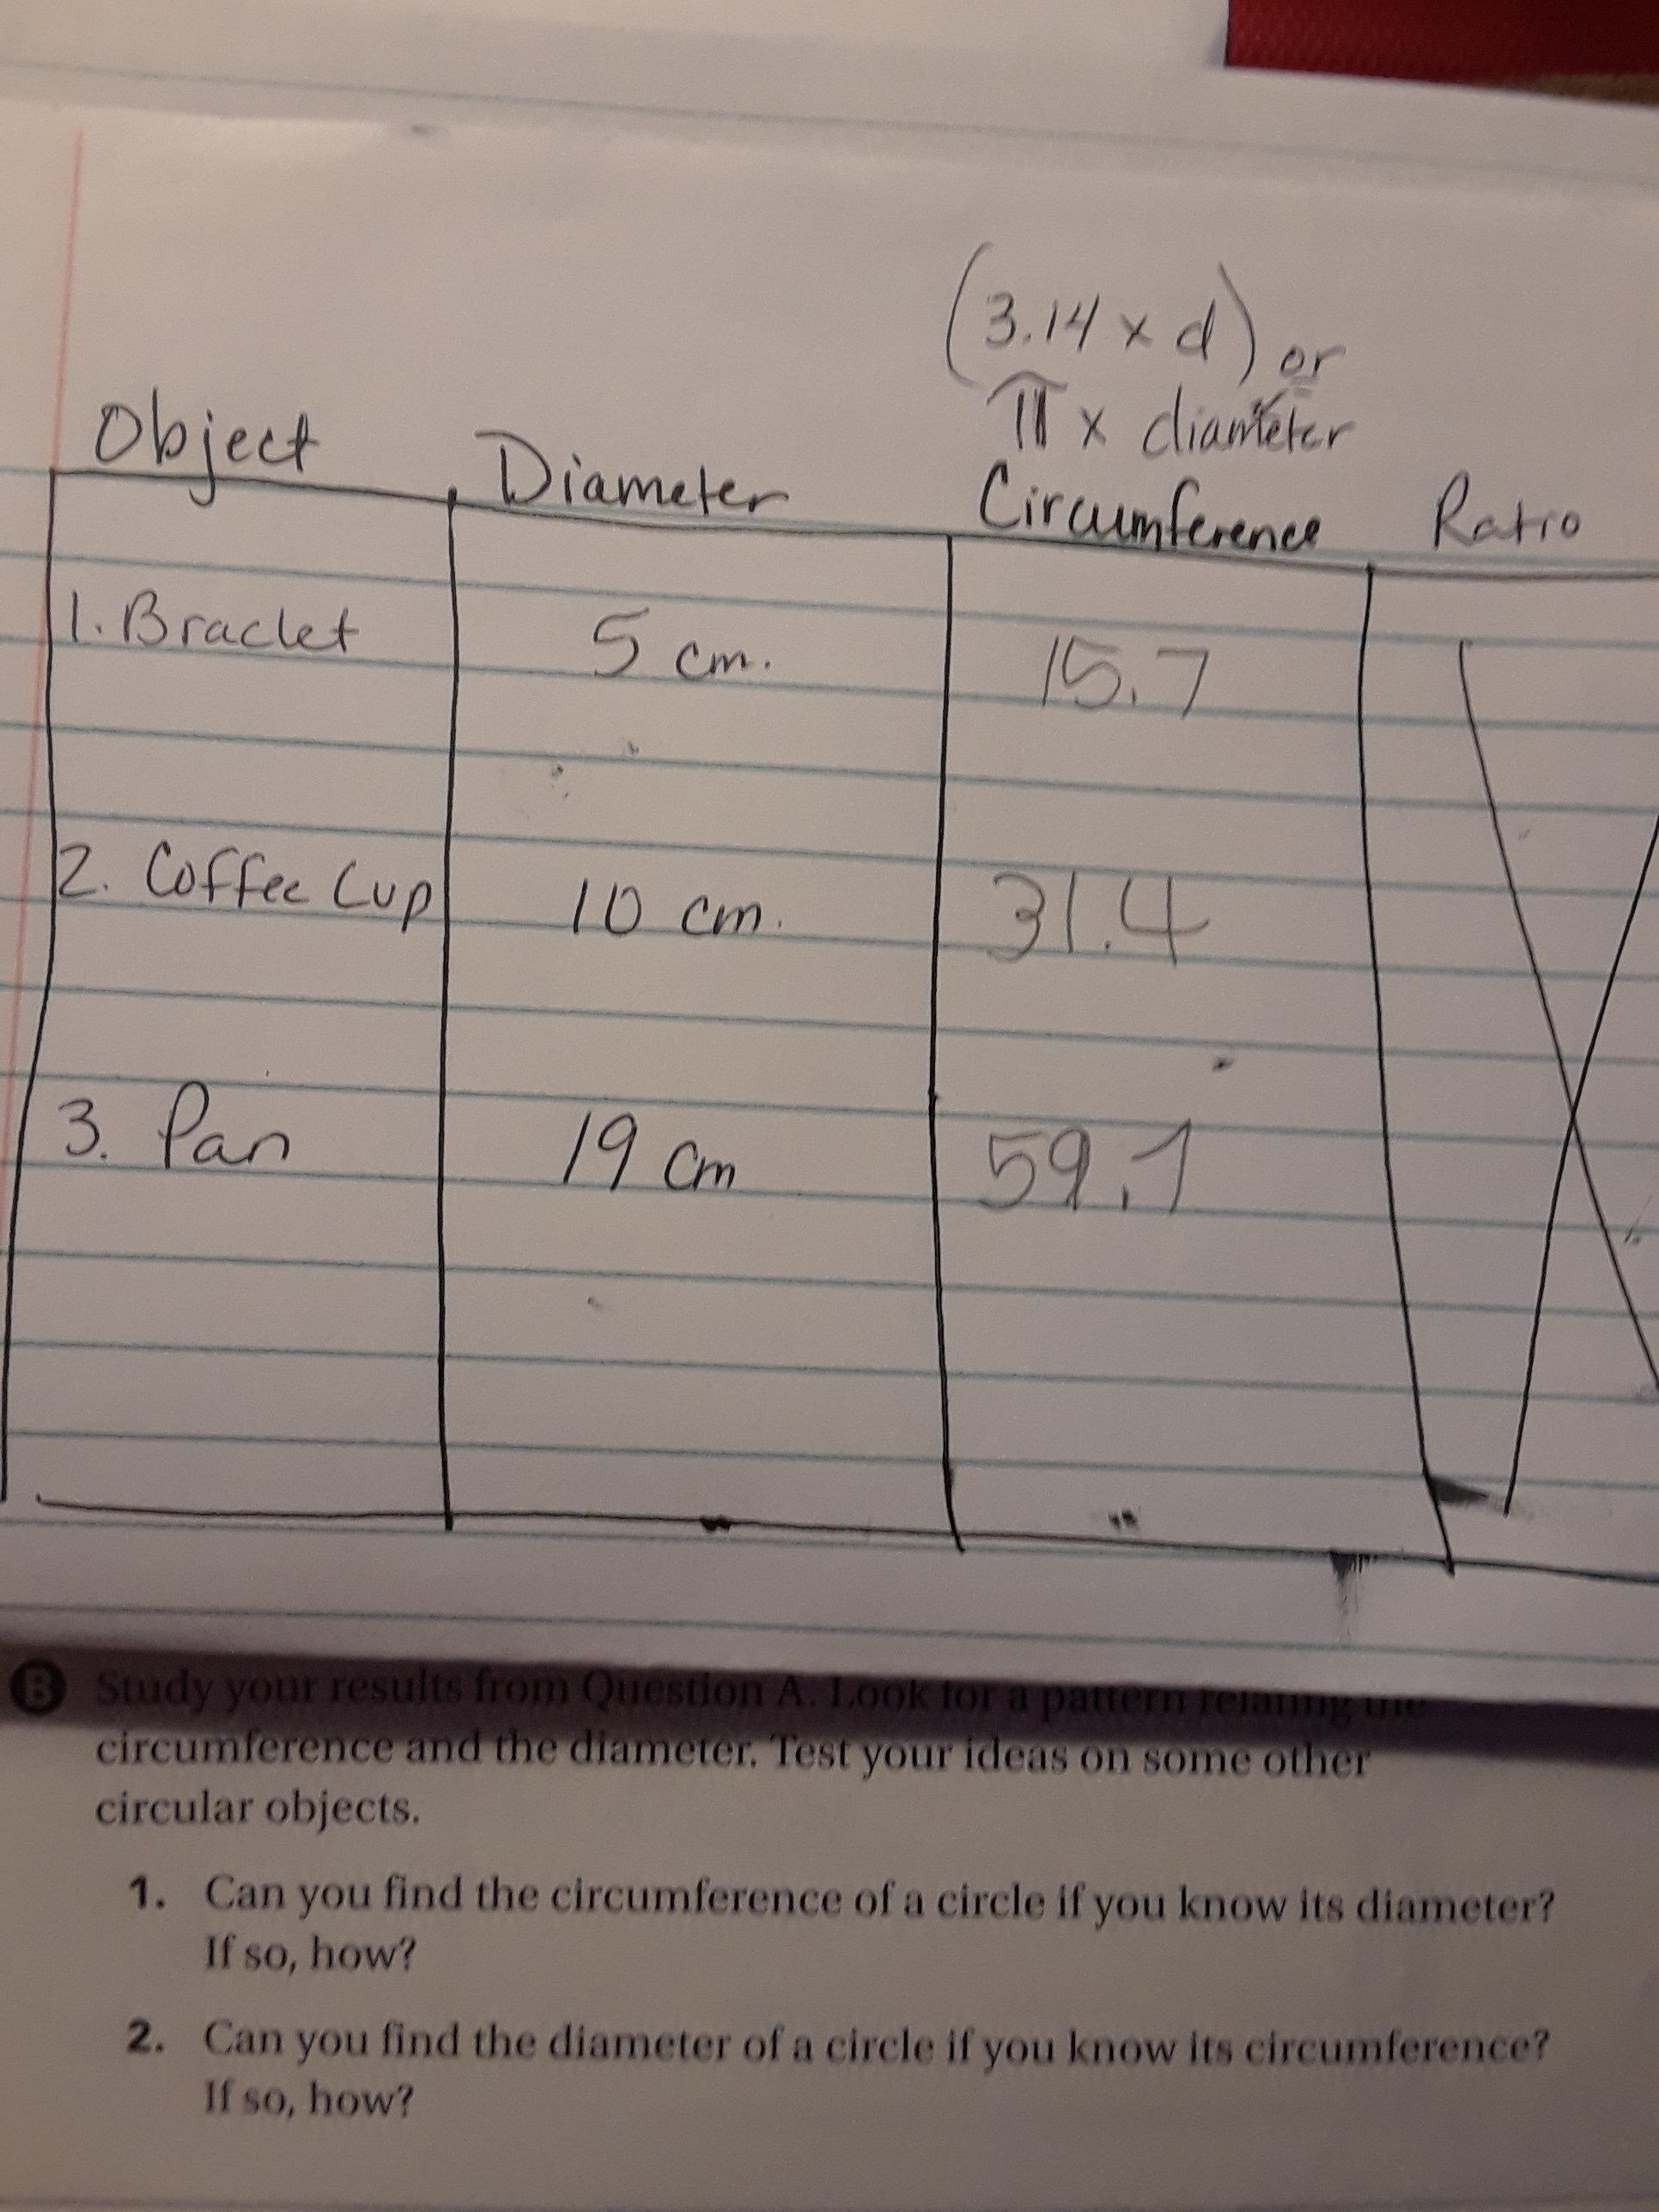 (3.14 x d) or
π x diameter
Object Diameter Circumference Ratio
1. Braclet 5 cm. 15.7
2. Coffee Cup 10 cm. 31.4
3. Pan 19 cm 59.1
B Study your results from Question A. Look for a pattern relating the
circumference and the diameter. Test your ideas on some other
circular objects.
1. Can you find the circumference of a circle if you know its diameter?
If so, how?
2. Can you find the diameter of a circle if you know its circumference?
If so, how?